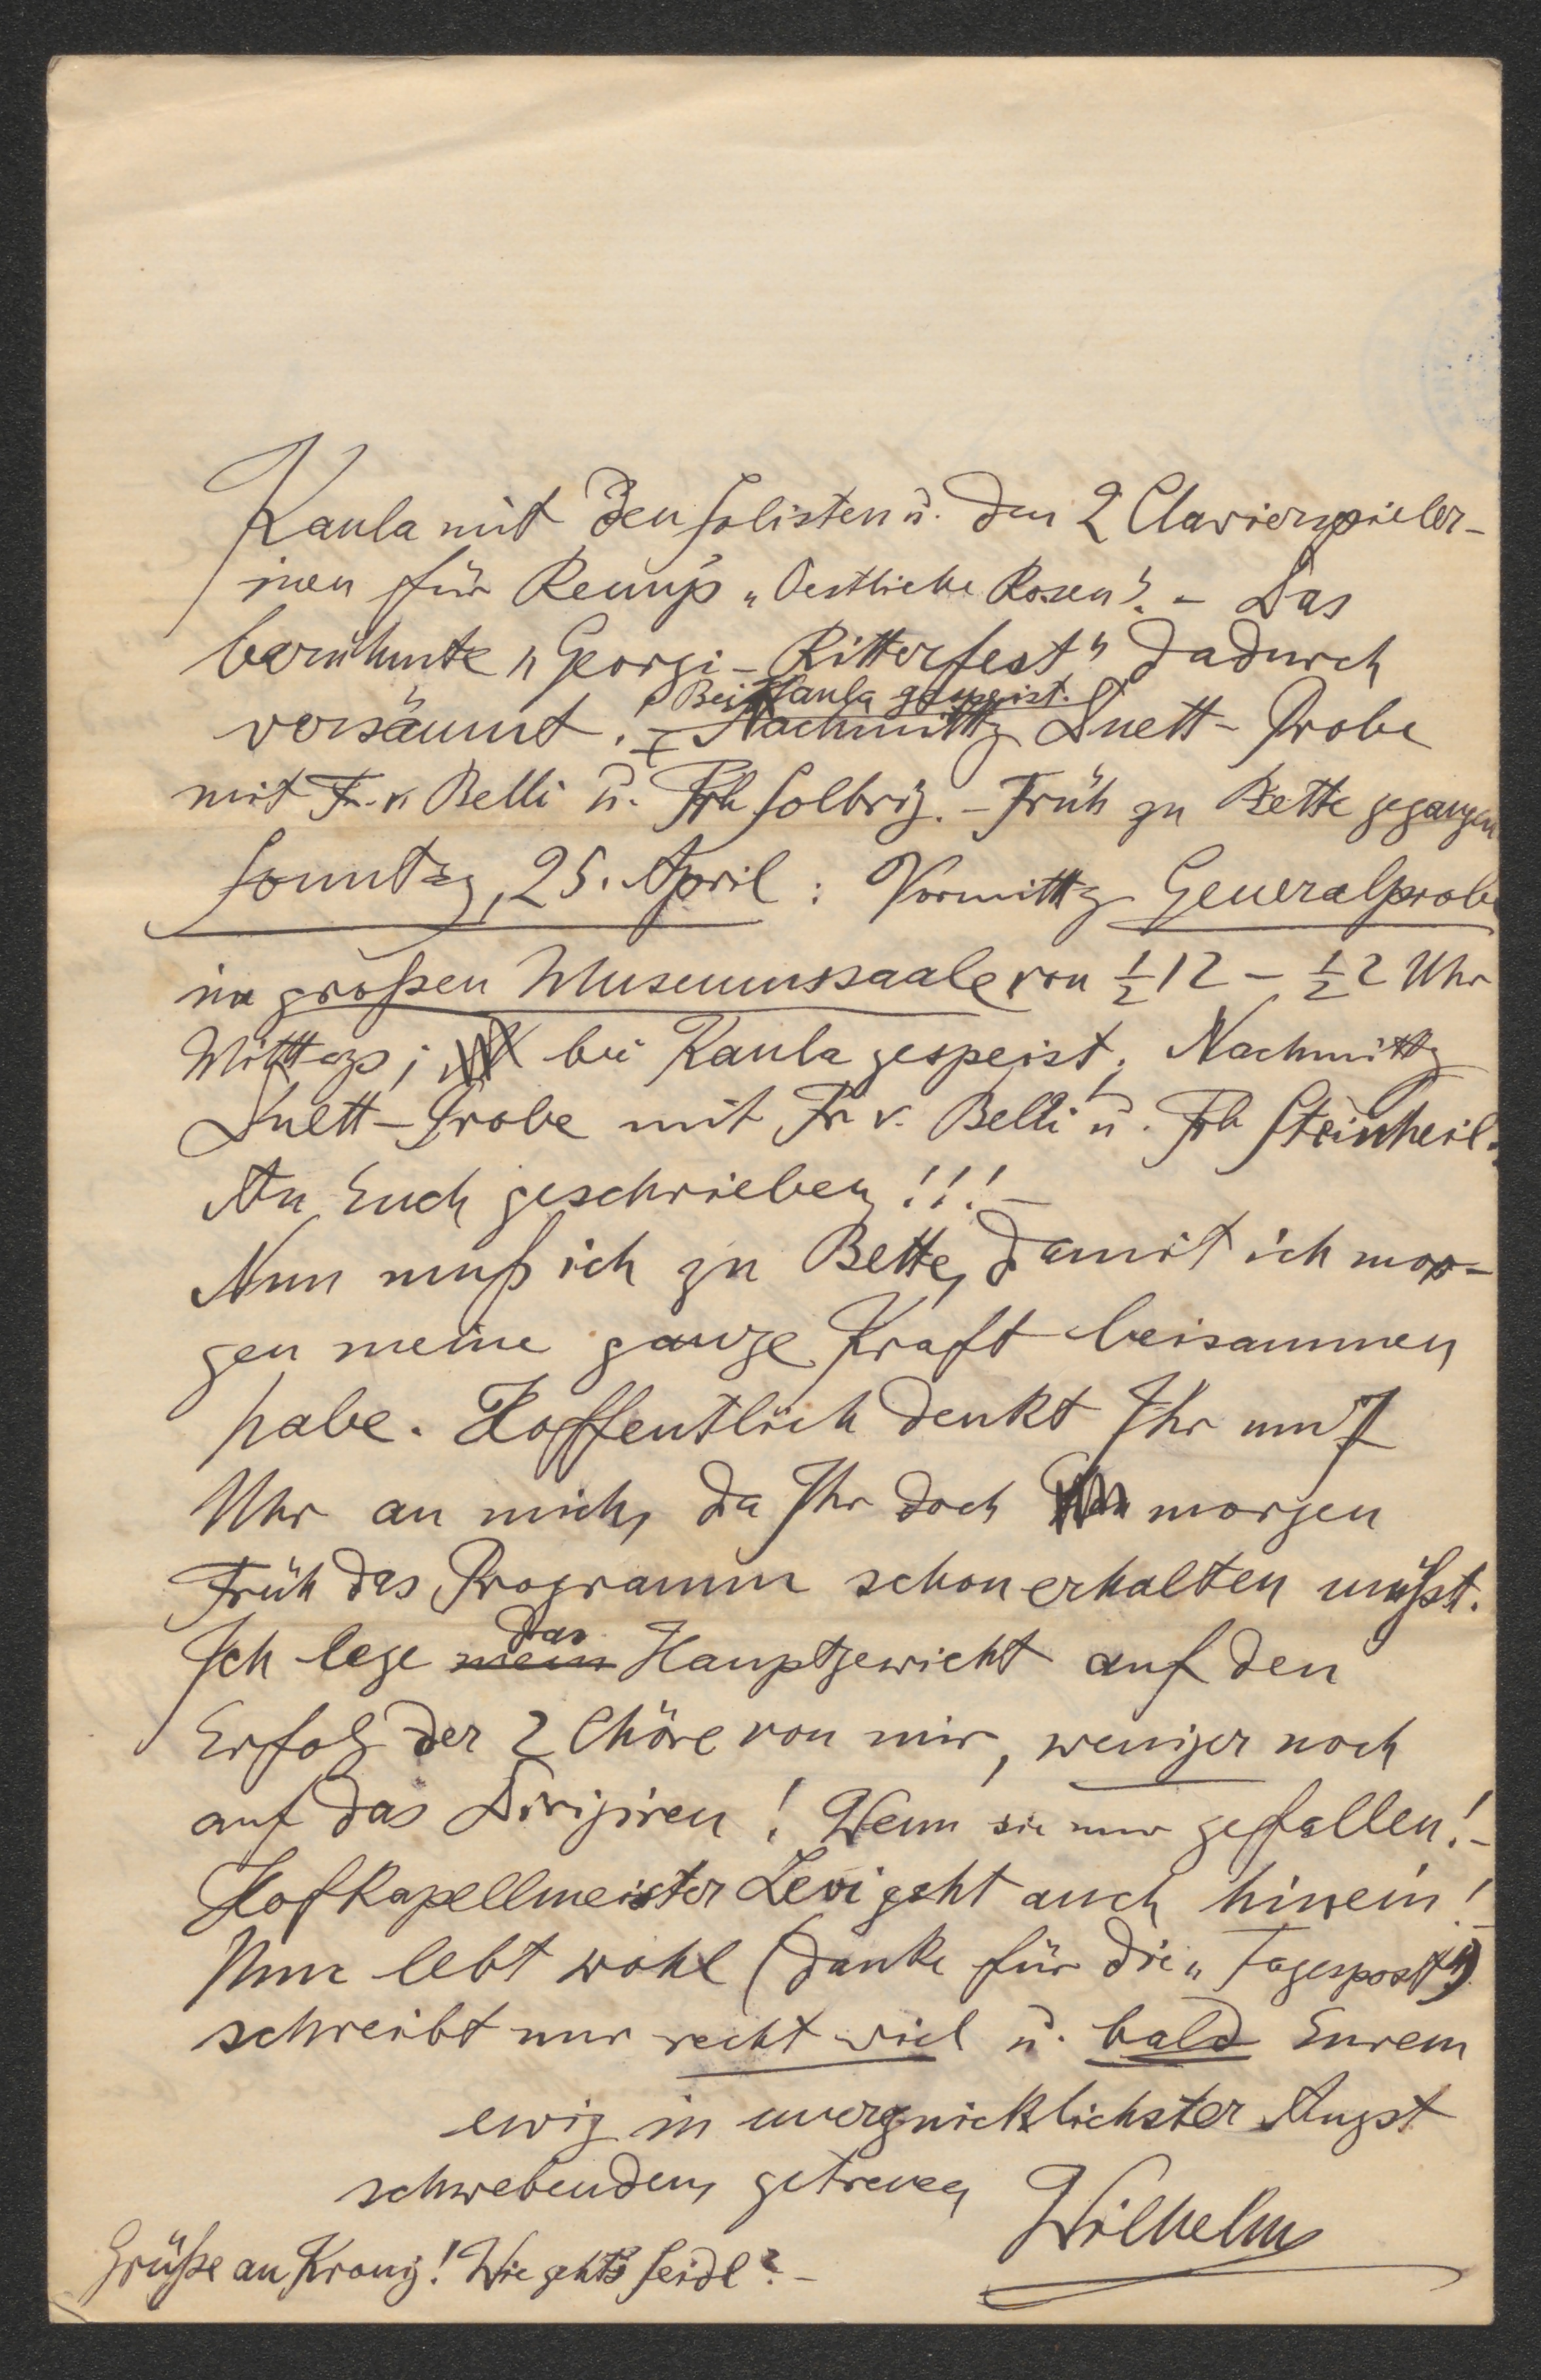 Kaula mit den Solisten u. den 2 Clavierspieler-
inen für Remy's „Oestliche Rosen". – Das
berühmte „Georgi-Ritterfest" dadurch
Bei Kaula gespeist.
versäumt. – Nachmittg Duett-Probe
mit Fr. v. Belli u. Frl Solbrig. – Früh zu Bette gegangen
Sonntag, 25. April: Vormittg Generalprobe
im großen Museumssaale von ½12 – ½2 Uhr
Mittags; bei Kaula gespeist; Nachmittg
Duett-Probe mit Fr v. Belli u. Frl Steinheil.
An Euch geschrieben!!! –
Nun muß ich zu Bette, damit ich mor-
gen meine ganze Kraft beisammen
habe. Hoffentlich denkt Ihr um 7
Uhr an mich, da Ihr doch morgen
Früh das Programm schon erhalten müßt.
das
Ich lege mein Hauptgewicht auf den
Erfolg der 2 Chöre von mir, weniger noch
auf das Dirigiren! Wenn sie nur gefallen! –
Hofkapellmeister Levi geht auch hinein! –
Nun lebt wohl (danke für die „Tagespost")
schreibt nur recht viel u. bald Eurem
ewig in unerquicklichster Angst
schwebenden, getreuen
Wilhelm
Grüße an Kranz! Wie geht's Seidl? –